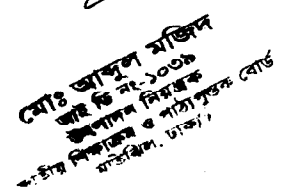 মোঃ আবুল মাজিদ
আই ডি নং-১০৩৯
সম্পাদনা বিশেষজ্ঞ
জাতীয় শিক্ষাক্রম ও পাঠ্য পুস্তক বোর্ড
মতিঝিল. ঢাকা।